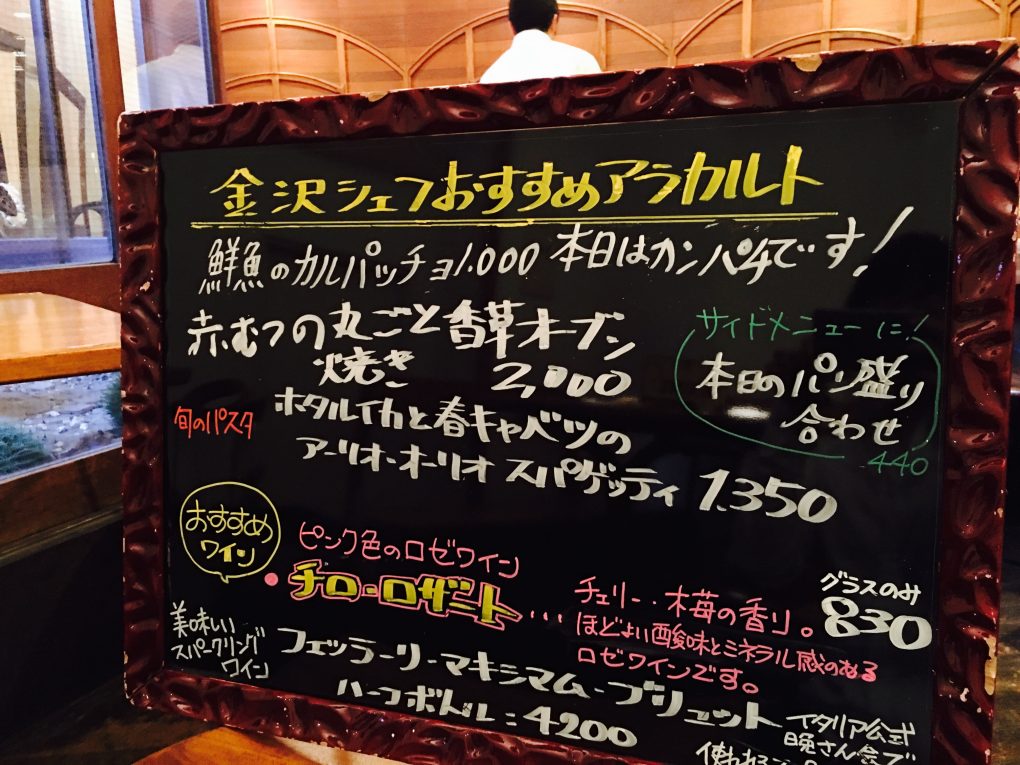 金沢シェフおすすめアラカルト
鮮魚のカルパッチョ1.000 本日はカンパチです!
赤むつの丸ごと香草オーブン
焼き 2,000
サイドメニューに!
本日のパン盛り
合わせ
440
旬のパスタ
ホタルイカと春キャベツの
アーリオ・オーリオ スパゲッティ 1.350
おすすめ
ワイン
ピンク色のロゼワイン
・チロ・ロザート...
チェリー・木苺の香り。
ほどよい酸味とミネラル感のある
ロゼワインです。
グラスのみ
830
美味しい
スパークリング
ワイン
フェッラーリ・マキシマム・ブリュット
ハーフボトル:4200
イタリア公式
晩さん会で
使われ